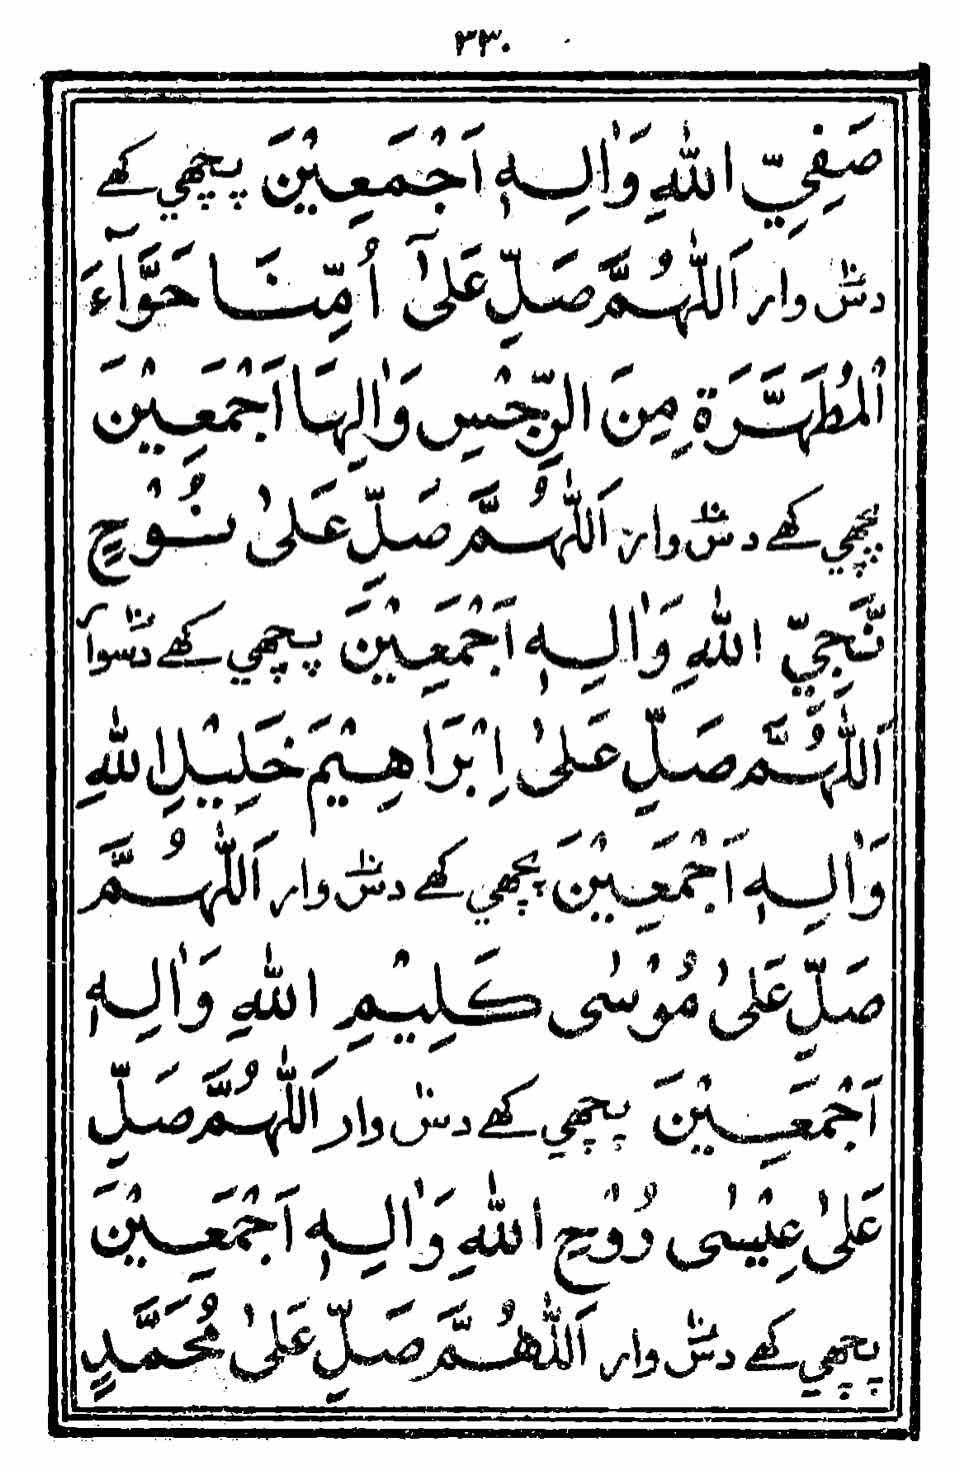 ۳۳۰
صَفِيِّ اللهِ وَاٰلِهٖ اَجْمَعِيْنَ پچھي کھے
دسؔ وار اَللّٰهُمَّ صَلِّ عَلىٰٓ اُمِّنَا حَوَّآءَ
الْمُطَهَّرَةِ مِنَ الرِّجْسِ وَاٰلِهَا اَجْمَعِيْنَ
پچھي کھے دسؔ وار اَللّٰهُمَّ صَلِّ عَلىٰ نُوْحٍ
نَّجِيِّ اللهِ وَاٰلِهٖ اَجْمَعِيْنَ پچھي کھے دسوآ
اَللّٰهُمَّ صَلِّ عَلىٰ اِبْرَاهِيْمَ خَلِيْلِ اللهِ
وَاٰلِهٖ اَجْمَعِيْنَ پچھي کھے دسؔ وار اَللّٰهُمَّ
صَلِّ عَلىٰ مُوْسٰى كَلِيْمِ اللهِ وَاٰلِهٖ
اَجْمَعِيْنَ پچھي کھے دس وار اَللّٰهُمَّ صَلِّ
عَلىٰ عِيْسٰى رُوْحِ اللهِ وَاٰلِهٖ اَجْمَعِيْنَ
پچھي کھے دسؔ وار اَللّٰهُمَّ صَلِّ عَلىٰ مُحَمَّدٍ